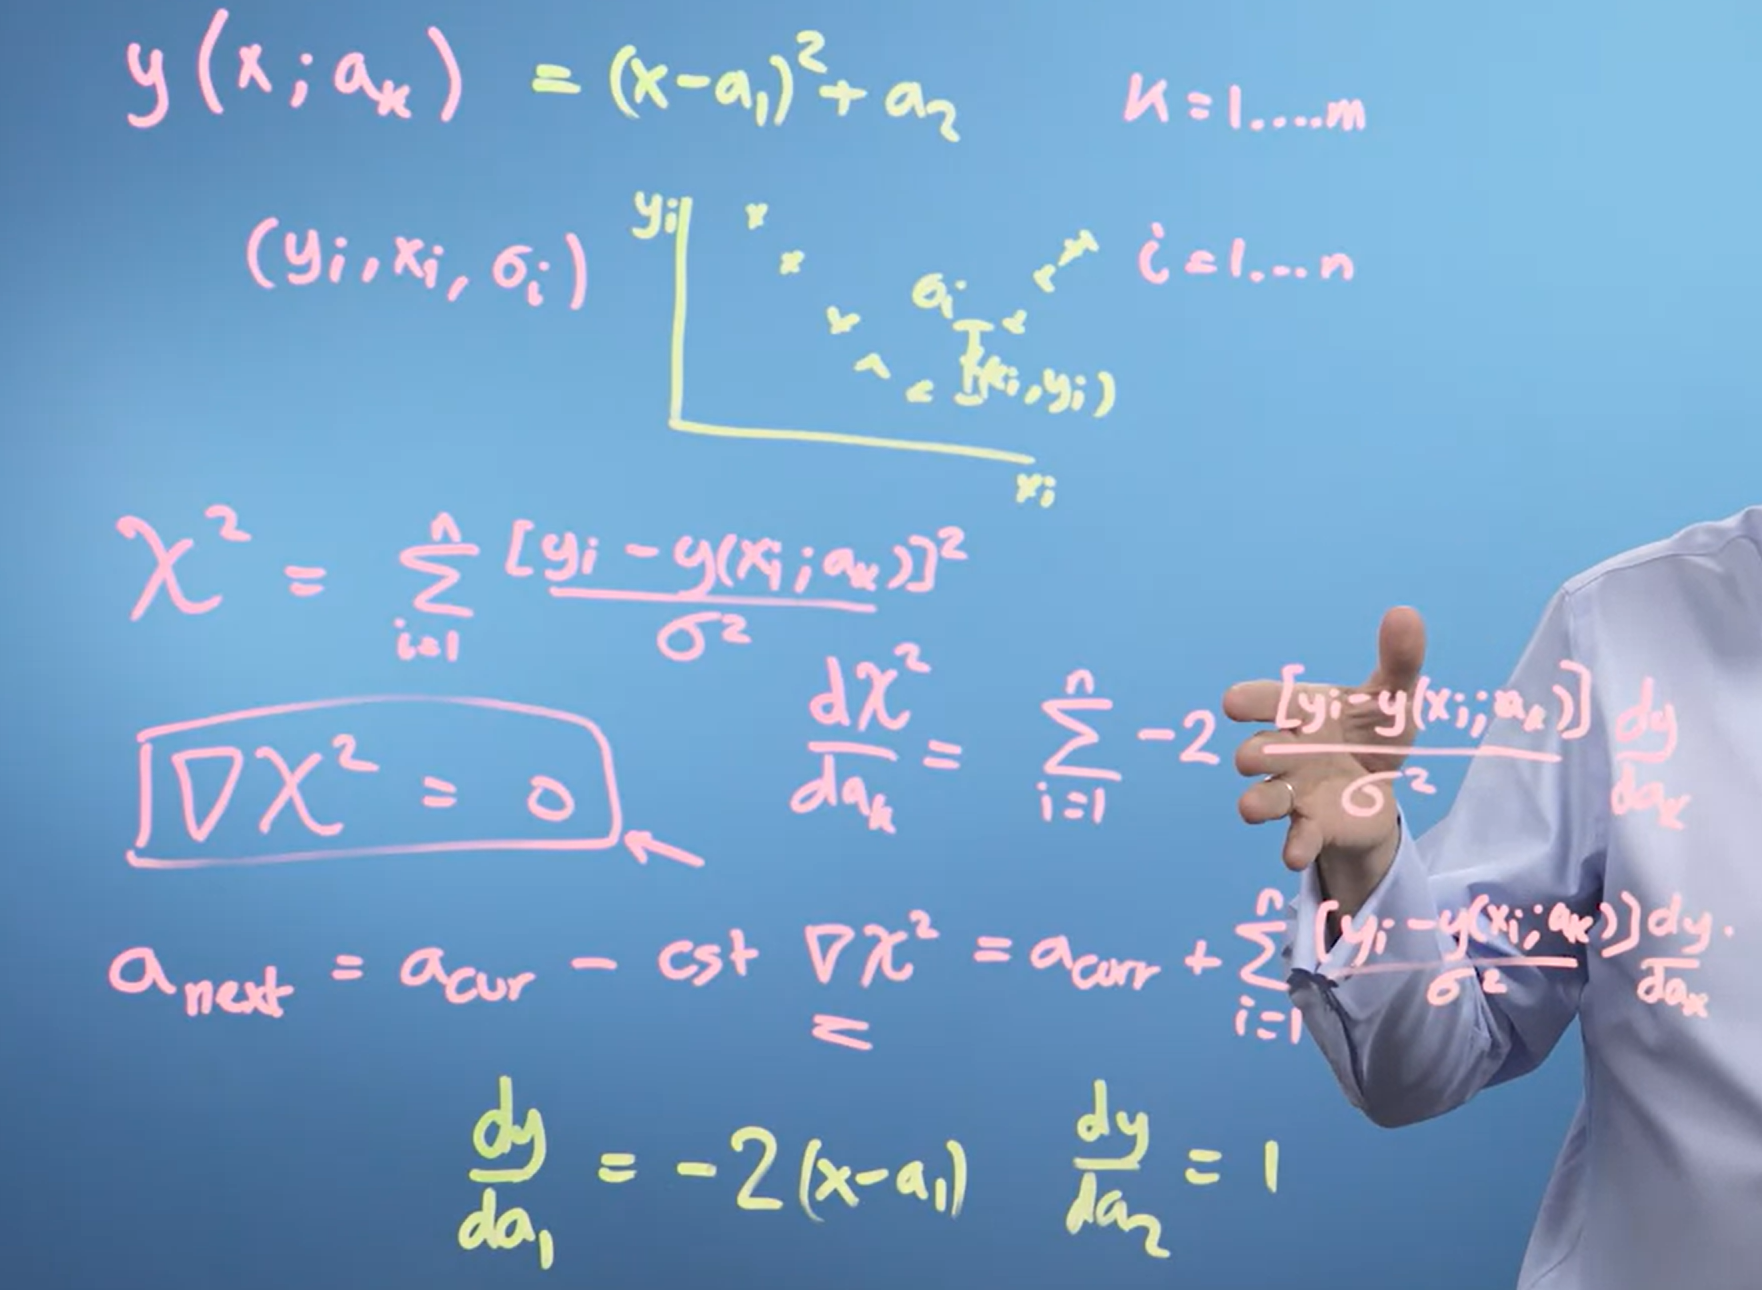 y(x; aₖ) = (x-a₁)² + a₂   K = 1....m
(yᵢ, xᵢ, σᵢ)   yᵢ   i = 1...n
σᵢ
(xᵢ, yᵢ)
xᵢ
χ² = Σⁿᵢ₌₁ [yᵢ - y(xᵢ; aₖ)]² / σ²
∇χ² = 0   dχ²/daₖ = Σⁿᵢ₌₁ -2 [yᵢ - y(xᵢ; aₖ)] / σ² dy/daₖ
a next = a cur - cst ∇χ² = a curr + Σⁿᵢ₌₁ [yᵢ - y(xᵢ; aₖ)] / σ² dy/daₖ .
dy/da₁ = -2(x-a₁)   dy/da₂ = 1